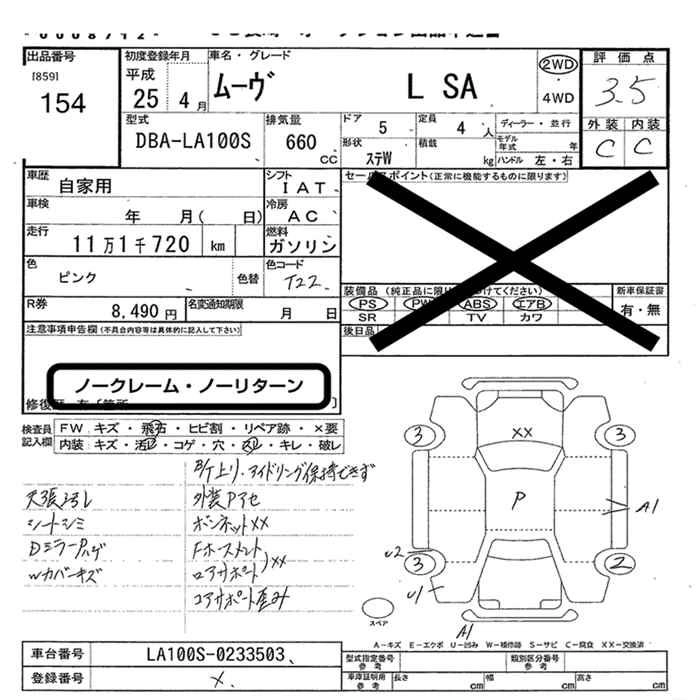 出品番号
[859]
154
初度登録年月
平成
25年 4月
車名・グレード
ムーヴ L SA
2WD
4WD
評価点
3.5
外装 内装
C C
型式
DBA-LA100S
排気量
660 CC
ドア
5
定員
4 人
ディーラー・並行
モデル年式 年
形状
ステW
積載 kg
ハンドル 左・右
車歴
自家用
シフト
IAT
セールスポイント(正常に機能するものに限ります)
車検
年 月( 日)
冷房
AC
走行
11万1千720 km
燃料
ガソリン
色
ピンク
色替
色コード
T22
装備品 (純正品に限り
けてください)
PS PW ABS エアB
SR TV カワ
新車保証書
有・無
後日品
R券
8,490円
名変通知期限
月 日
注意事項申告欄(不具合内容等は具体的に記入して下さい)
ノークレーム・ノーリターン
検査員記入欄
FW キズ・飛石・ヒビ割・リペア跡・×要
内装 キズ・汚レ・コゲ・穴・スレ・キレ・破レ
B/T上り、アイドリング保持できず
天張汚レ 外装Pアセ
シートシミ ボンネットXX
DミラーPハゲ
Wカバーキズ
コアサポート歪み
XX
3 3
P
A1
U2
3 2
U1
A1
スペア
A-キズ E-エクボ U-凹み W-補修跡 S-サビ C-腐食 XX-交換済
車台番号 LA100S-0233503
登録番号 ×
型式指定番号 参考
類別区分番号 参考
車庫証明用 参考
長さ cm 幅 cm 高さ cm